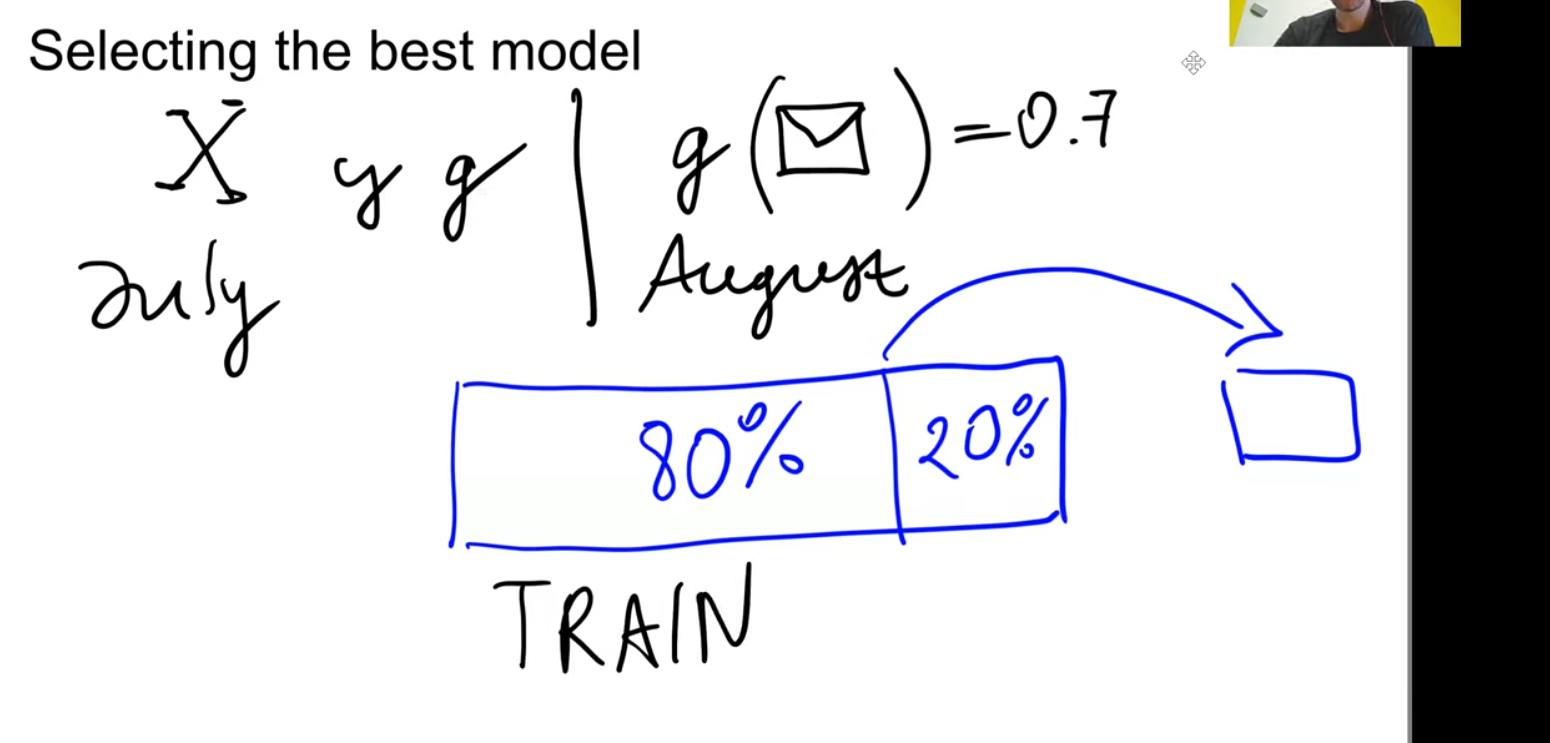 Selecting the best model
X y g | g( ) = 0.7
July August
80% 20%
TRAIN